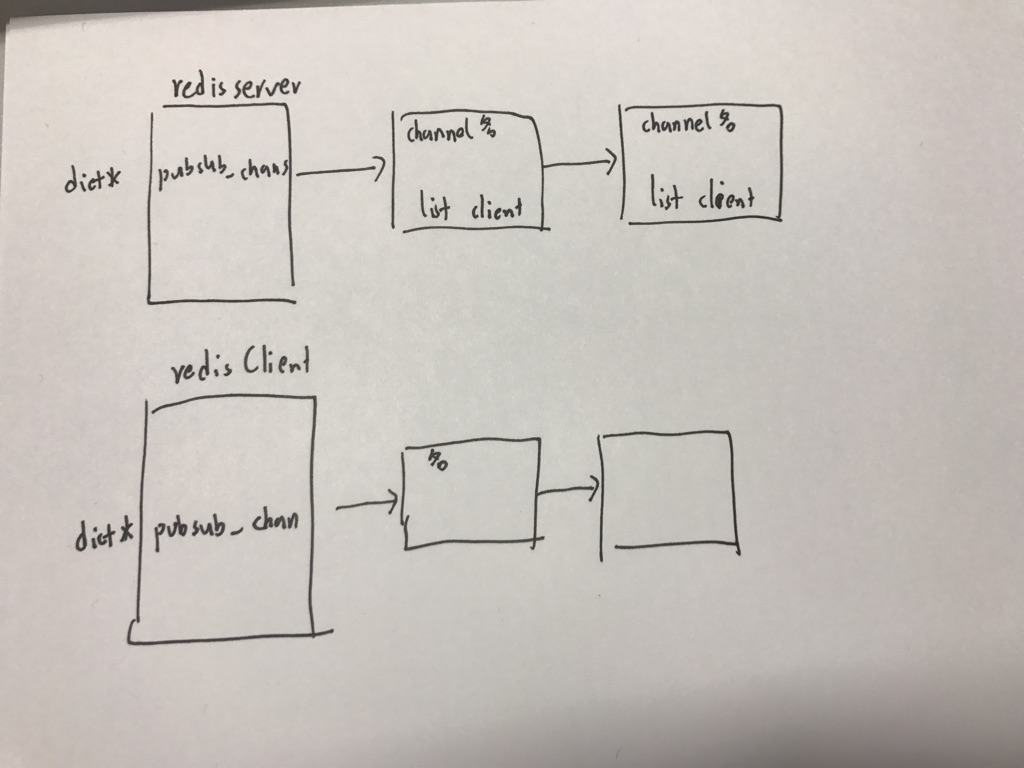 redis server
dict*
pubsub_chans
channel 名
list client
channel 名
list client
redis Client
dict*
pubsub_chan
名